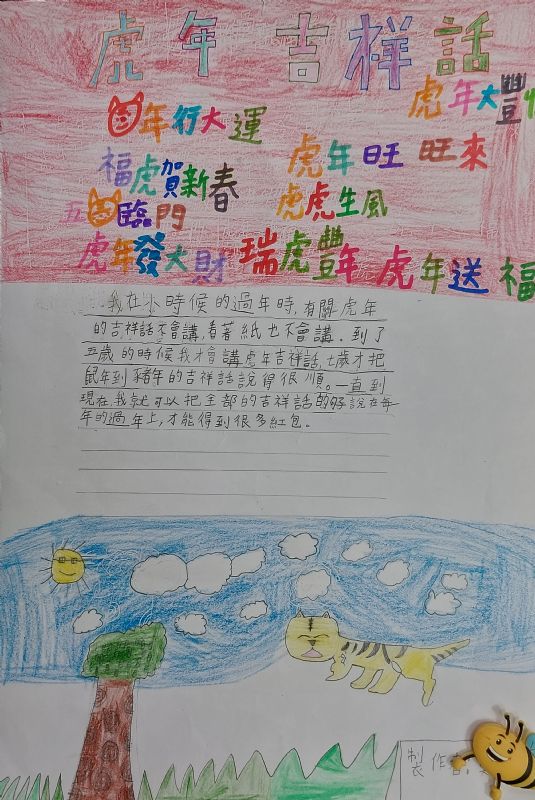 虎年 吉祥話
年行大運
虎年大豐
福虎賀新春
虎年旺旺來
五臨門
虎虎生風
虎年發大財
瑞虎豐年
虎年送福
我在小時候的過年時,有關虎年
的吉祥話不會講,看著紙也不會講.到了
五歲的時候我才會講虎年吉祥話,七歲才把
鼠年到豬年的吉祥話說得很順。一直到
現在,我就可以把全部的吉祥話的好說在每
年的過年上,才能得到很多紅包。
製作